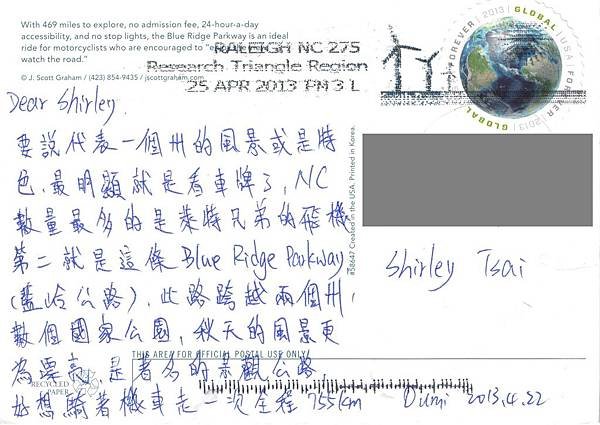 With 469 miles to explore, no admission fee, 24-hour-a-day
accessibility, and no stop lights, the Blue Ridge Parkway is an ideal
ride for motorcyclists who are encouraged to
watch the road."
© J. Scott Graham / (423) 854-9435 / jscottgraham.com
RALEIGH NC 275
Research Triangle Region
25 APR 2013 PM 3 L
FOREVER 2013 GLOBAL USA FOREVER 2013 GLOBAL
Dear Shirley,
要說代表一個州的風景或是特
色,最明顯就是看車牌了,NC
數量最多的是萊特兄弟的飛機
第二就是這條Blue Ridge Parkway
(藍嶺公路),此路跨越兩個州,
數個國家公園,秋天的風景更
為漂亮,是著名的景觀公路
好想騎著機車走一次全程 755km
Dumi 2013.4.22
Shirley Tsai
#58647 Created in the USA, Printed in Korea.
THIS AREA FOR OFFICIAL POSTAL USE ONLY
RECYCLED
PAPER